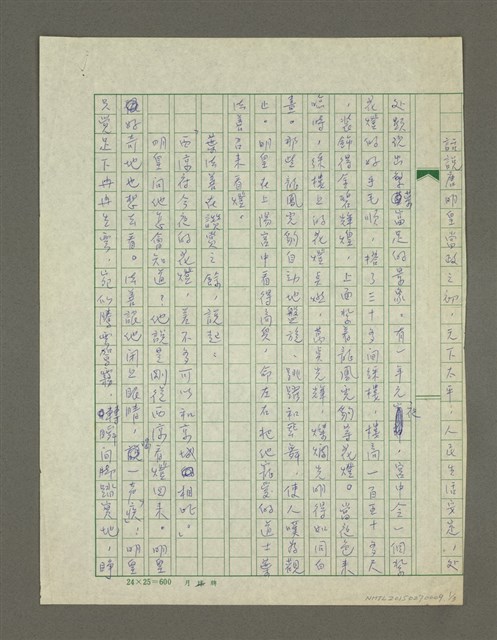 話說唐明皇當政之初，天下太平，人民生活安定，處
處顯現出豐富足的景象。有一年元夜，宮中令一個紮
花燈的好手毛順，搭了三十多間綵樓，樓高一百五十多尺
，裝飾得金碧輝煌，上面紮著龍鳳虎豹等花燈。當夜色來
臨時，綵樓上的花燈點燃，萬點光輝，燦爛光明得如同白
晝。那些龍鳳虎豹自動地盤旋、跳躍和飛舞，使人嘆為觀
止。明皇在上陽宮中看得高興，命左右把他最愛的道士葉
法善召來看燈。
葉法善在讚賞之餘，說起：
「西涼府今夜的花燈，差不多可以和京城相比。」
明皇問他怎會知道？他說是剛從西涼看燈回來。明皇
好奇地也想去看。法善請他閉上眼睛，喝一聲「疾！」明皇
只覺足下冉冉生雲，宛似騰雲駕霧，轉瞬間腳踏實地，睜
24×25=600
月